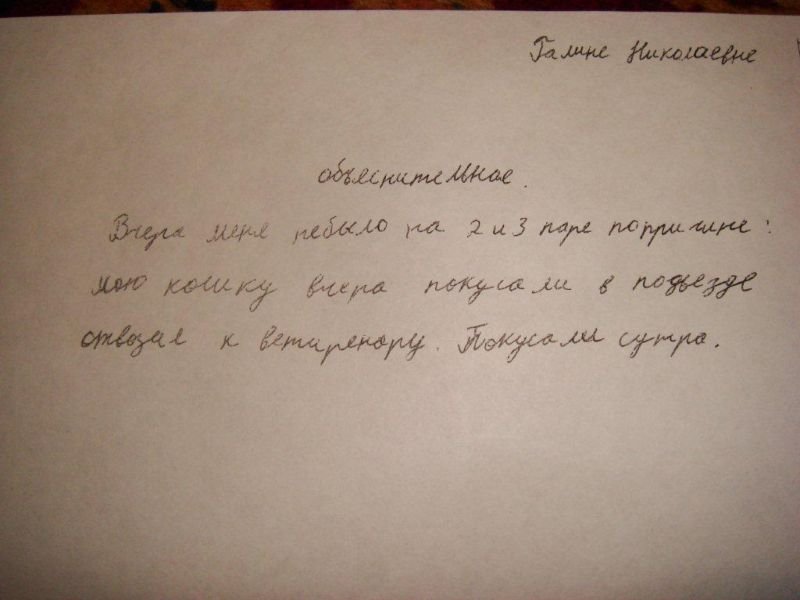 Галине Николаевне
объяснительное.
Вчера меня небыло на 2 и 3 паре попричине:
мою кошку вчера покусали в подьезде
отвозил к ветиренару. Покусали сутра.